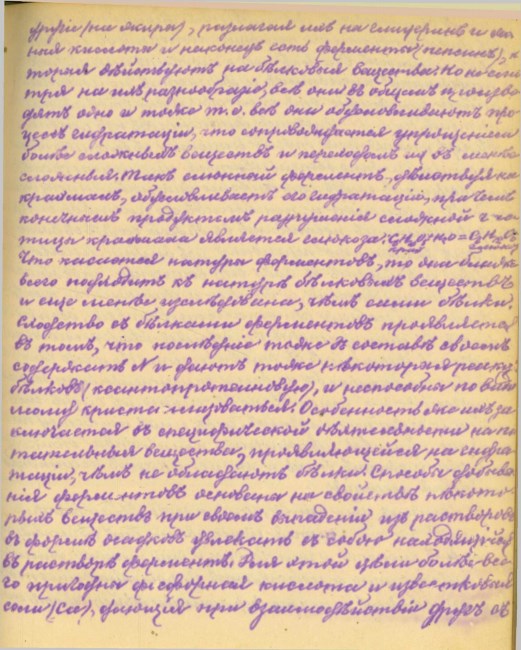 другіе (на жиры), разлагая ихъ на глицеринъ и жир-
ныя кислоты и наконецъ есть ферменты (пепсинъ), ко-
торые дѣйствуютъ на бѣлковыя вещества. Но не смо-
тря на ихъ разнообразіе, всѣ они въ общемъ произво-
дятъ одно и тоже т.е. всѣ они обусловливаютъ про-
цессъ гидратаціи, что сопровождается упрощеніемъ
болѣе сложныхъ веществъ и переходомъ ихъ въ менѣе
сложныя. Такъ слюнной ферментъ, дѣйствуя на
крахмалъ, обусловливаетъ его гидратацію, при чемъ
конечнымъ продуктомъ разрушенія сложной ча-
тицы крахмала является глюкоза:
Что касается натуры ферментовъ, то она ближе
всего подходитъ къ натурѣ бѣлковыхъ веществъ
и еще менѣе изслѣдована, чѣмъ сами бѣлки.
Сходство съ бѣлками ферментовъ проявляется
въ томъ, что послѣдніе тоже въ составѣ своемъ
содержатъ N и даютъ тоже нѣкоторыя реакціи
бѣлковъ (ксантопротеиновую), и неспособны по
кристаллизоваться. Особенность же ихъ за-
ключается въ специфической дѣятельности на пи-
тательныя вещества, проявляющейся на гидра-
таціи, чѣмъ не обладаютъ бѣлки. Способъ добыва-
нія ферментовъ основанъ на свойствѣ нѣкото-
рыхъ веществъ при своемъ выпаденіи изъ растворовъ
въ формѣ осадковъ увлекать съ собою находящійся
въ растворѣ ферментъ. Для этой цѣли болѣе все-
го пригодна фосфорная кислота и известковыя
соли (Ca), дающія при взаимодѣйствіи другъ съ